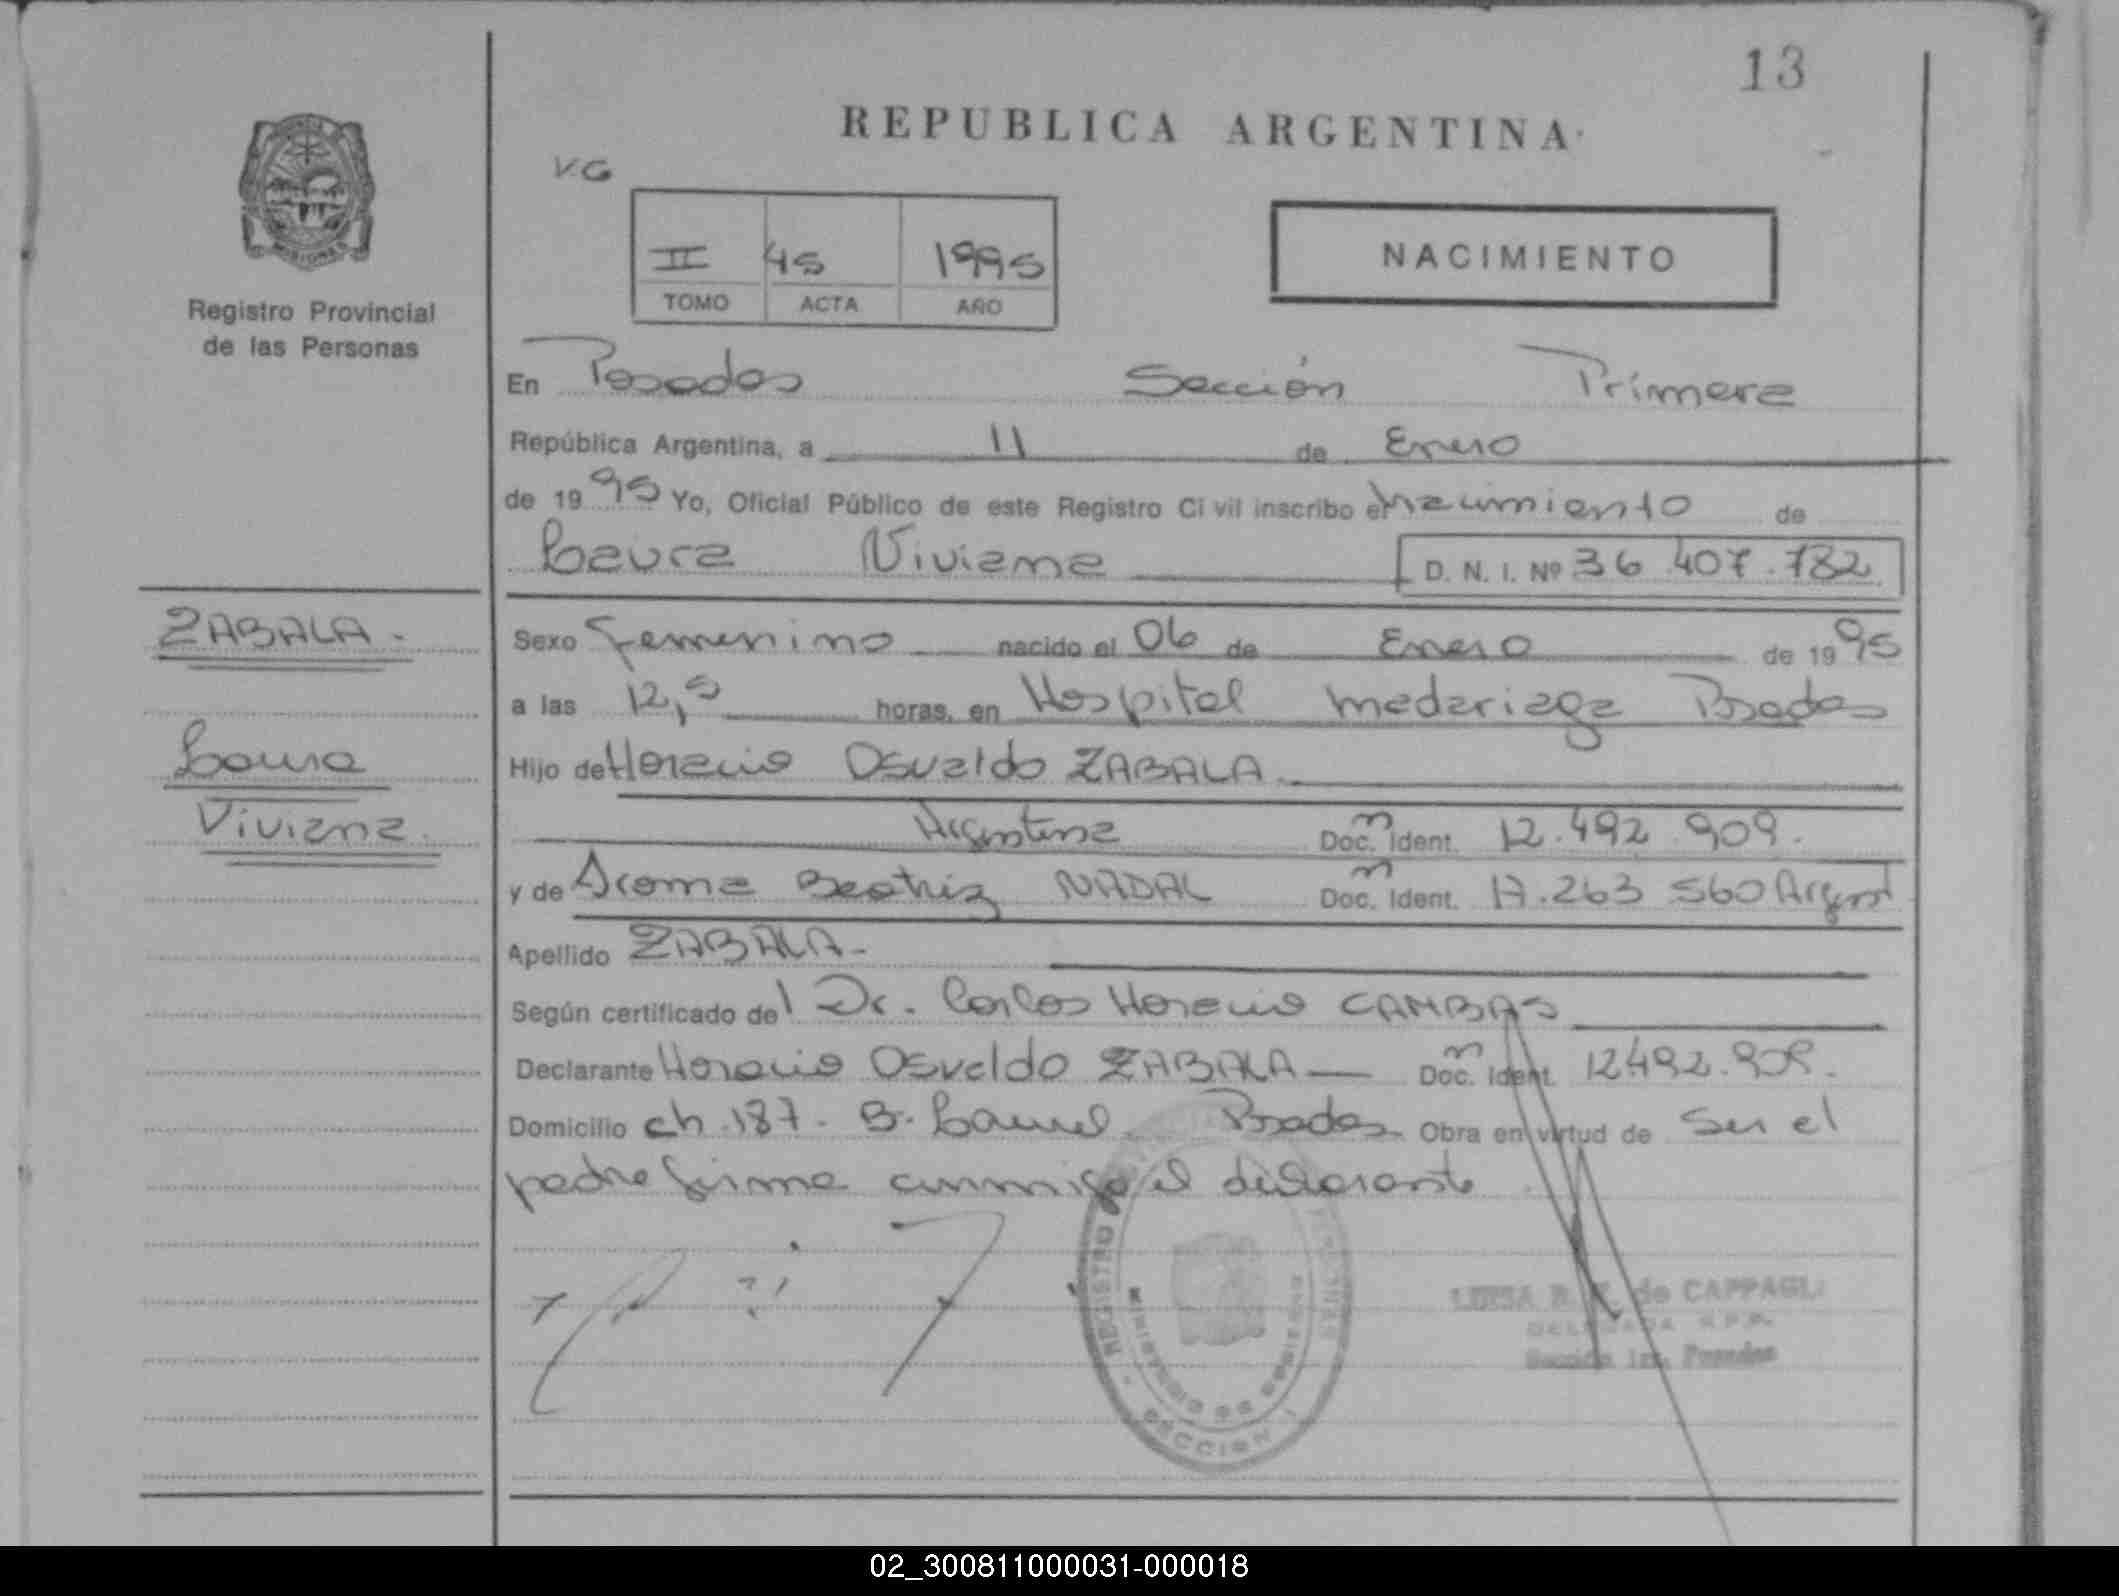 13
REPUBLICA ARGENTINA
V.G
II 45 1995
TOMO ACTA AÑO
NACIMIENTO
Registro Provincial
de las Personas
En Posadas Sección Primera
República Argentina, a 11 de Enero
de 1995 Yo, Oficial Público de este Registro Civil inscribo el nacimiento de
Laura Viviana D. N. I. Nº 36.407.782
ZABALA.-
Laura
Viviana.
Sexo femenino nacido el 06 de Enero de 1995
a las 12,5 horas, en Hospital Madariaga Posadas
Hijo de Horacio Osvaldo ZABALA
Argentina Doc. Ident. 12.492.909.
y de Beatriz NADAL Doc. Ident. 17.263 560 Argent
Apellido ZABALA.-
Según certificado del Dr. Carlos Horacio CAMBAS
Declarante Horacio Osvaldo ZABALA — Doc. Ident. 12492.909.
Domicilio ch. 187. B. Posadas. Obra en virtud de Ser el
padre firma conmigo el declarante
REGISTRO
MINISTERIO DE GOBIERNO
SECCION I
de CAPPAGLI
DELEGADA R.P.P.
Sección 1ra. Posadas
02_300811000031-000018